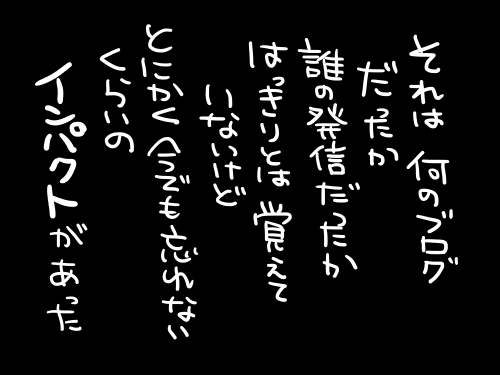 それは 何のブログ
だったか
誰の発信だったか
はっきりとは 覚えて
いないけど
とにかく 今でも 忘れない
くらいの
インパクトがあった